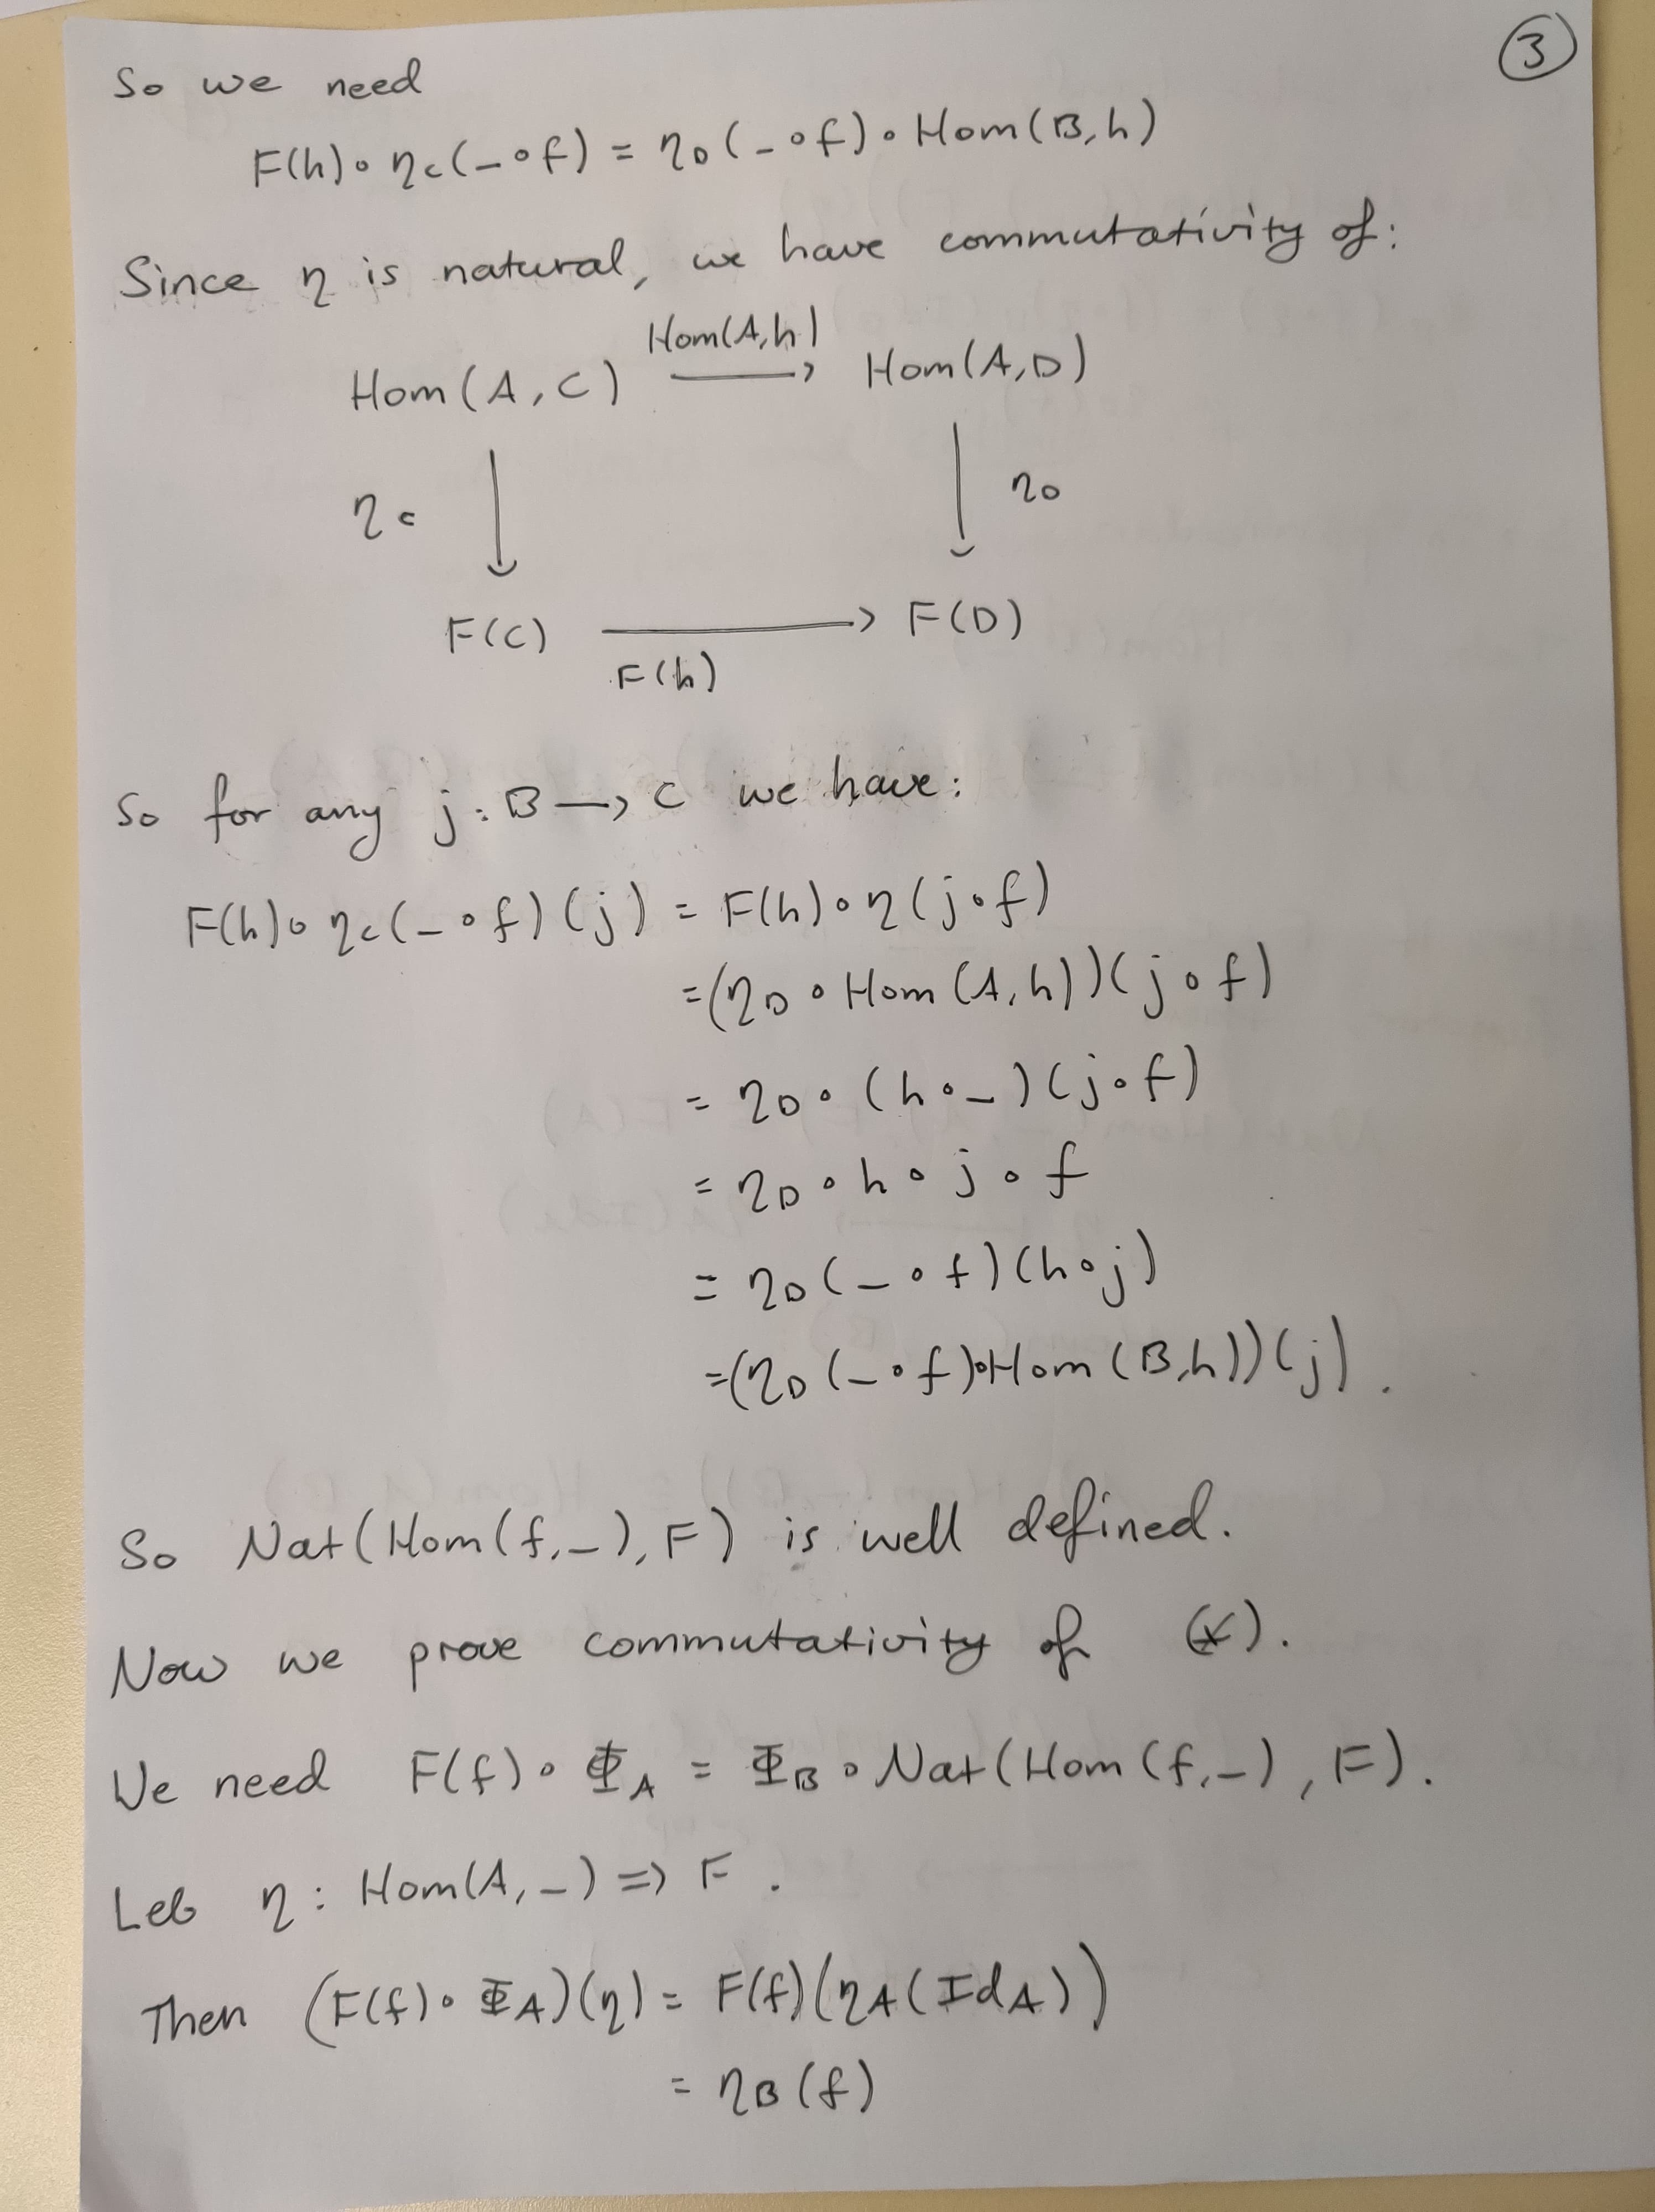 ③
So we need
F(h)∘η_C(_∘f) = η_D(_∘f)∘Hom(B,h)
Since η is natural, we have commutativity of:
Hom(A,h)
Hom(A,C) ⟶ Hom(A,D)
η_C ↓ ↓ η_D
F(C) ⟶ F(D)
F(h)
So for any j:B→C we have:
F(h)∘η_C(_∘f)(j) = F(h)∘η(j∘f)
=(η_D∘Hom(A,h))(j∘f)
= η_D∘(h∘_)(j∘f)
= η_D∘h∘j∘f
= η_D(_∘f)(h∘j)
=(η_D(_∘f)∘Hom(B,h))(j).
So Nat(Hom(f,_),F) is well defined.
Now we prove commutativity of (*).
We need F(f)∘Φ_A = Φ_B∘Nat(Hom(f,_),F).
Let η: Hom(A,_)⇒F.
Then (F(f)∘Φ_A)(η) = F(f)(η_A(Id_A))
= η_B(f)